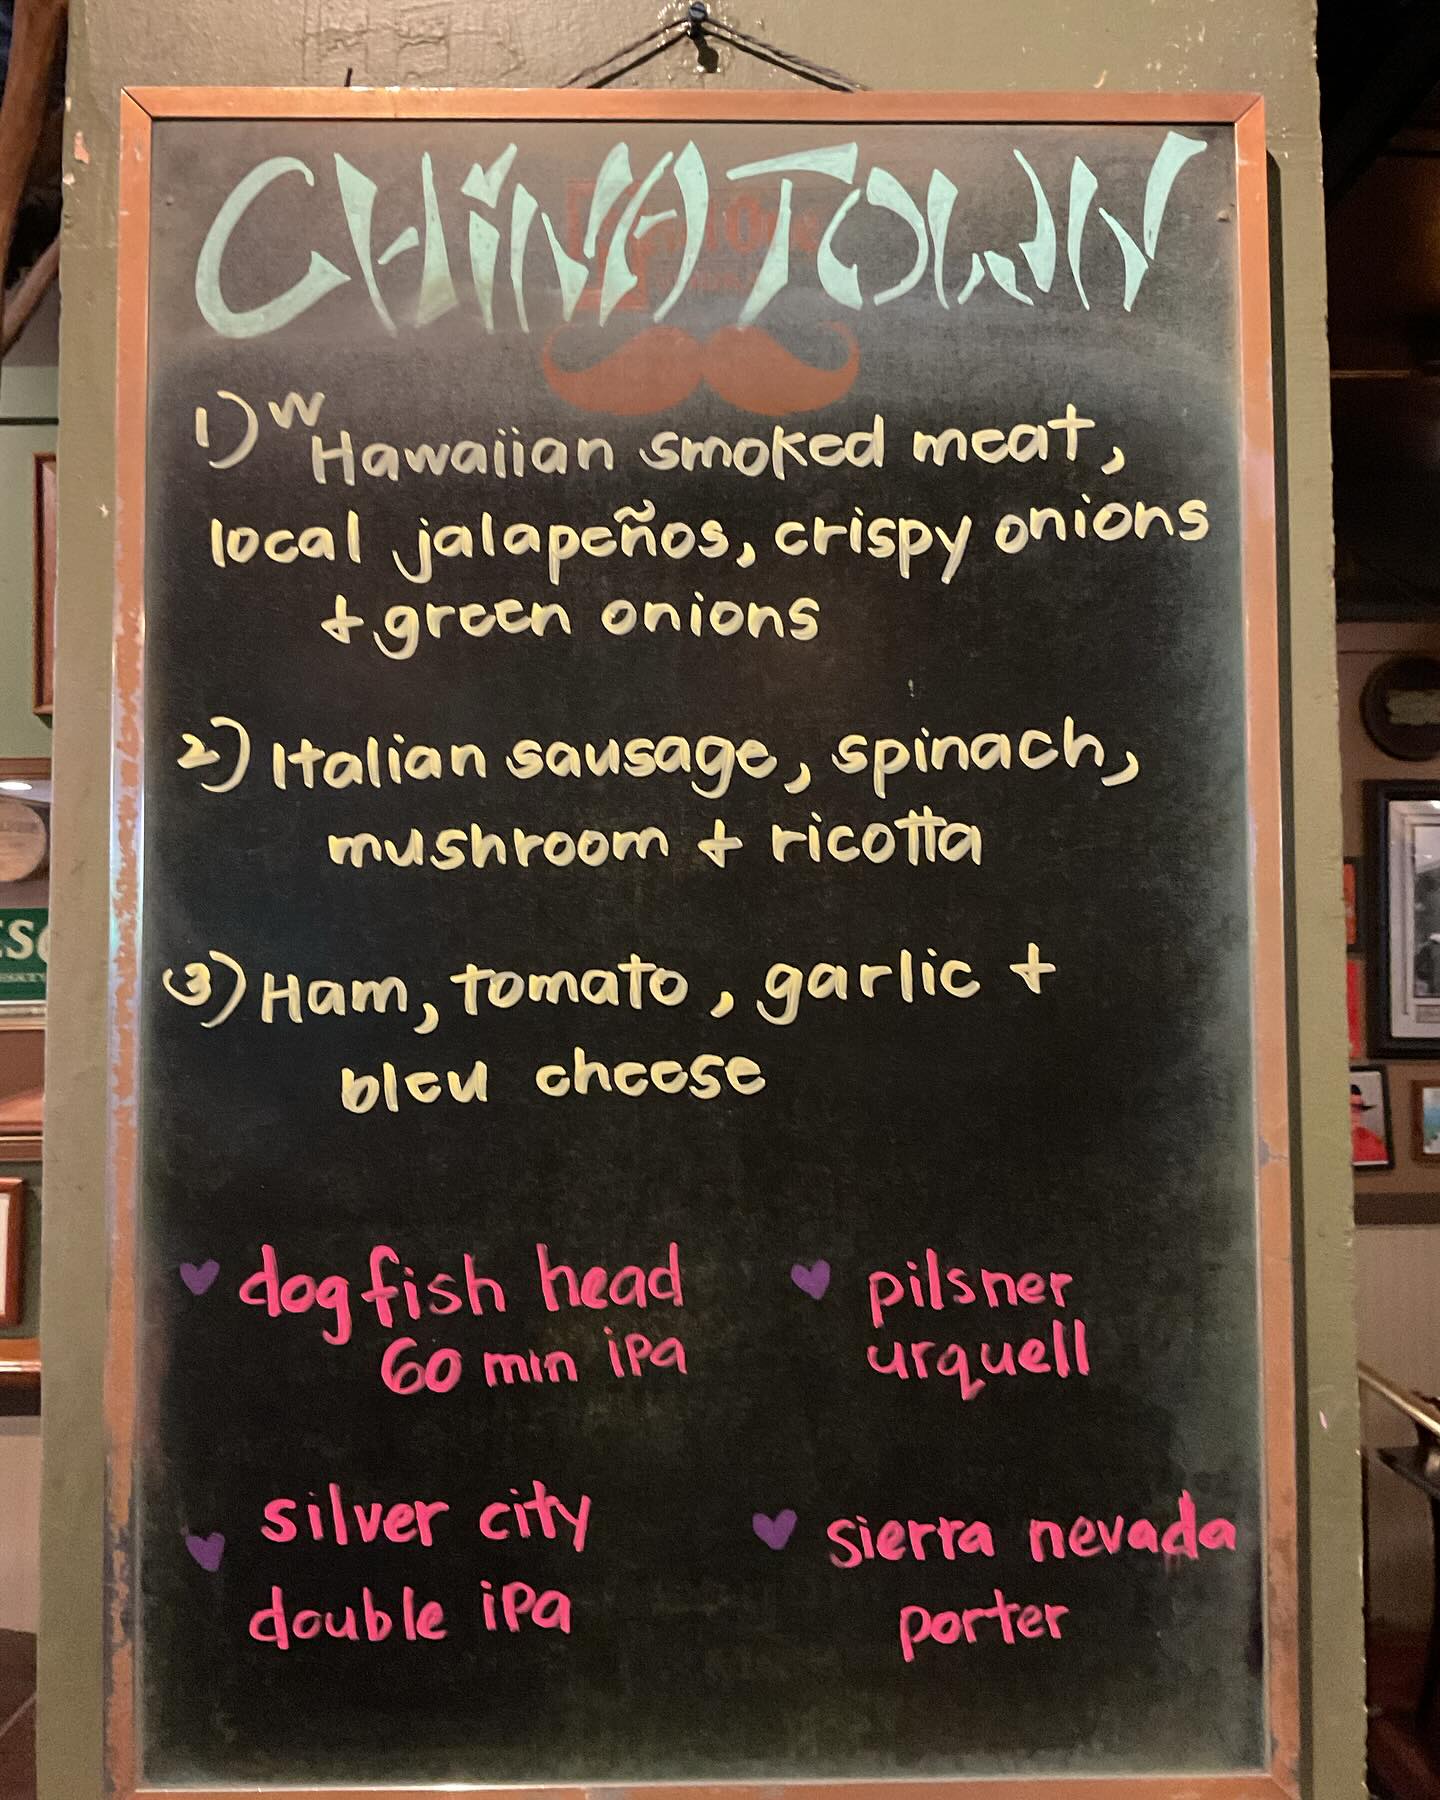 CHINATOWN
1) W Hawaiian smoked meat,
local jalapeños, crispy onions
+ green onions
2) Italian sausage, spinach,
mushroom + ricotta
3) Ham, tomato, garlic +
bleu cheese
dogfish head
60 min ipa
pilsner
urquell
silver city
double ipa
sierra nevada
porter